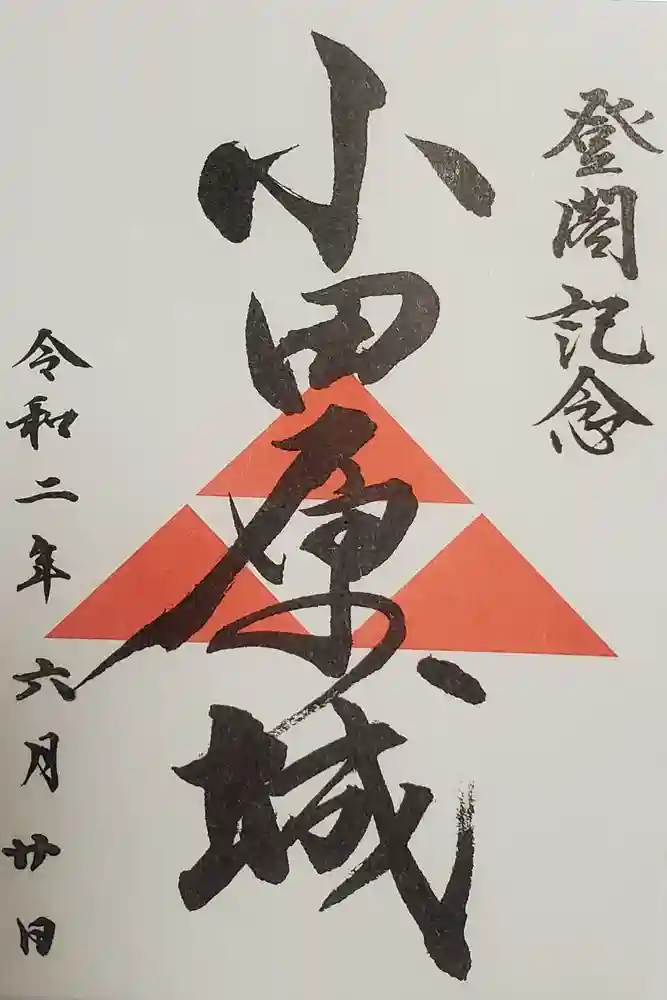 登閣記念
小田原城
令和二年六月廿日